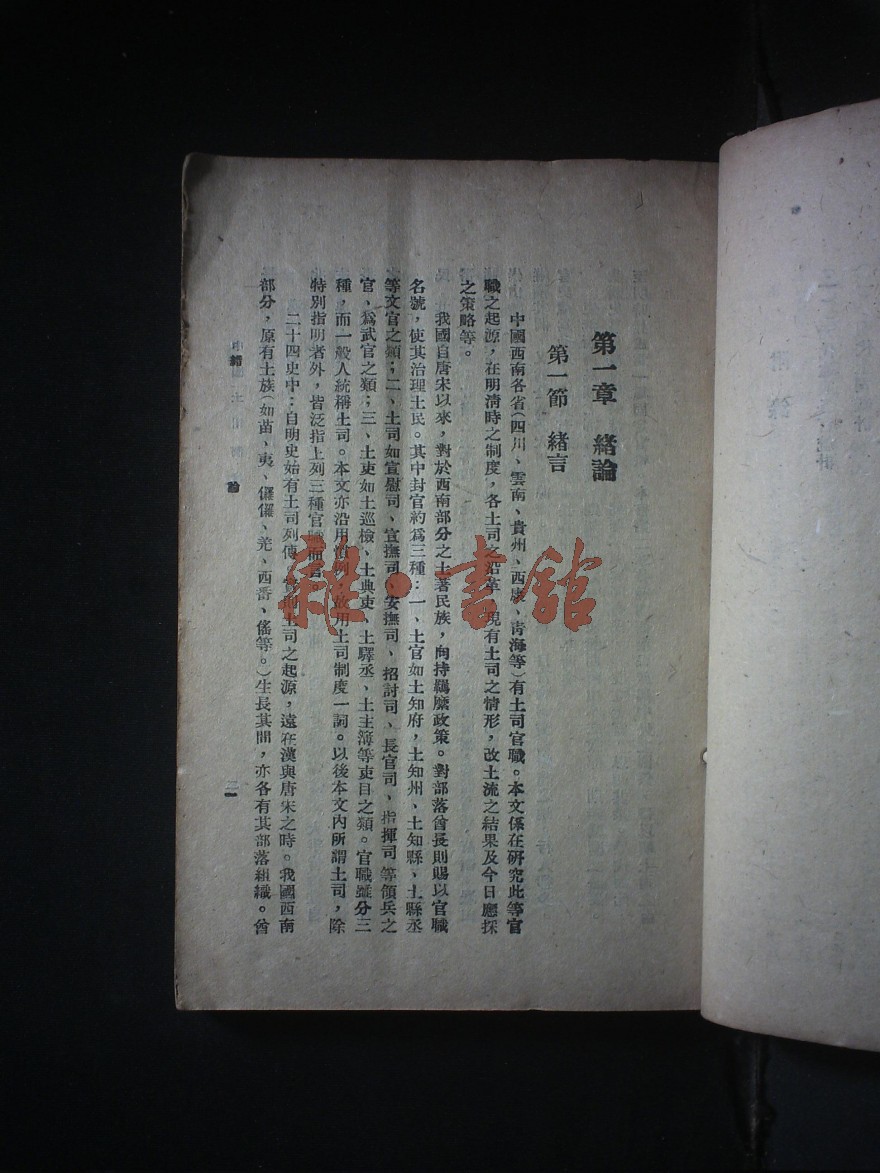 第一章 緒論
第一節 緒言
中國西南各省(四川、雲南、貴州、西康、靑海等)有土司官職。本文係在硏究此等官
職之起源,在明淸時之制度,各土司之沿革,現有土司之情形,改土流之結果及今日應採
之策略等。
我國自唐宋以來,對於西南部分之土著民族,向持羈縻政策。對部落酋長則賜以官職
名號,使其治理土民。其中封官約爲三種:一、土官如土知府,土知州、土知縣、土縣丞
等文官之類;二、土司如宣慰司、宣撫司、安撫司、招討司、長官司、指揮司等領兵之
官、爲武官之類;三、土吏如土巡檢、土典吏、土驛丞、土主簿等吏目之類。官職雖分三
種,而一般人統稱土司。本文亦沿用慣例,故用土司制度一詞。以後本文內所謂土司,除
特別指明者外,皆泛指上列三種官職而言。
二十四史中:自明史始有土司列傳,實則土司之起源,遠在漢與唐宋之時。我國西南
部分,原有土族(如苗、夷、儸儸、羌、西番、傜等。)生長其間,亦各有其部落組織。酋
緒 論
二一
雜·書館